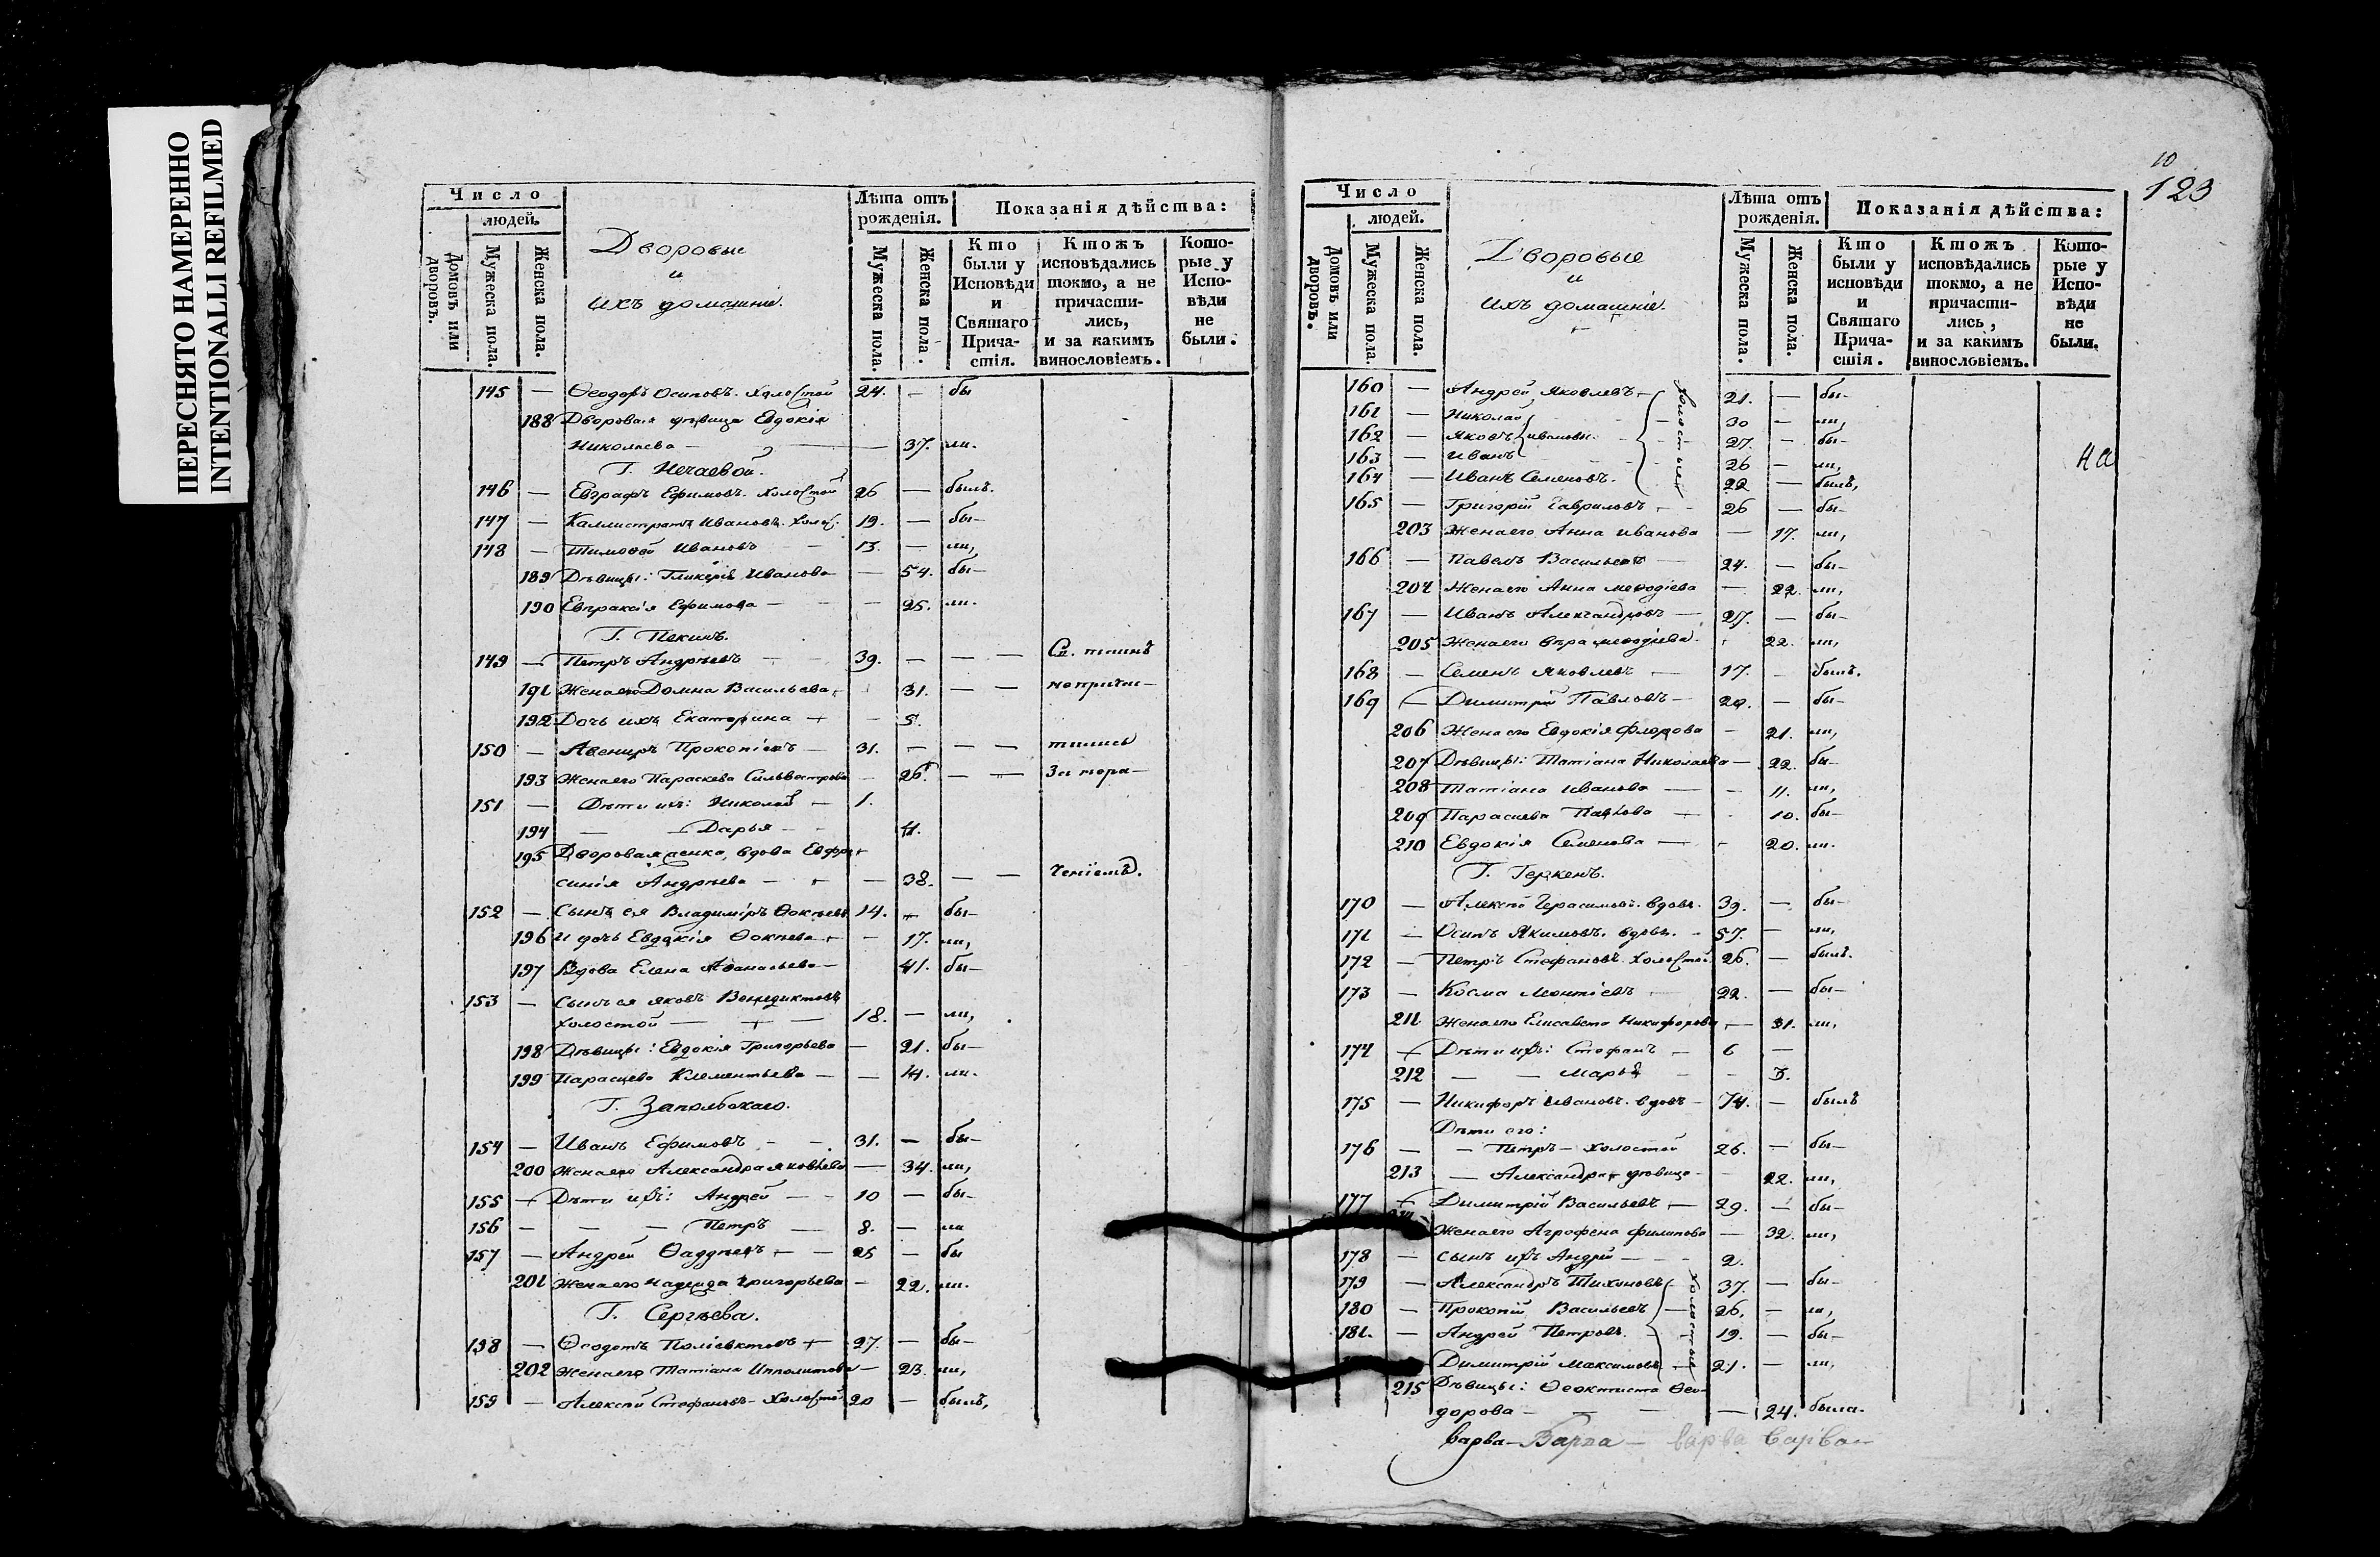 ПЕРЕСНЯТО НАМЕРЕННО
INTENTIONALLI REFILMED
Число
людей.
Домовъ или дворовъ.
Мужеска пола.
Женска пола.
Дворовые
и
ихъ домашніе.
Лѣта отъ рожденія.
Мужеска пола.
Женска пола.
Показанія дѣйства:
Кто были у Исповѣди и Святаго Причастія.
Ктожъ исповѣдались токмо, а не причастились, и за какимъ винословіемъ.
Которые у Исповѣди не были.
145 — Ѳеодоръ Осиповъ. холостой 24. — бы
188 Дворовая дѣвица Евдокія
Николаева — — 37. ли.
Г. Нечаевой.
146 — Евграфъ Ефимовъ. холостой 26 — былъ.
147 — Каллистратъ Ивановъ. холос. 19. — бы—
148 — Тимоѳей Ивановъ — 13. — ли,
189 Дѣвицы: Гликерія Иванова — 54. бы—
190 Евпраксія Ефимова — — 25. ли.
Г. Пекинъ.
149 — Петръ Андреевъ 39. — — — Св. таинъ
191 Жена его Домна Васильева 31. — — непричас—
192 Дочь ихъ Екатерина — — 5.
150 — Авениръ Прокопіевъ — 31. — — — тились
193 Жена его Параскева Сильвестрова — 26. — — За нера—
151 — Дѣти ихъ: Николай — 1.
194 — — Дарья — 4.
195 Дворовая женка, вдова Евфро
синія Андреева — — — 38. — — ченіемъ.
152 — Сынъ ея Владиміръ Ѳокѣевъ 14. — бы—
196 И дочь Евдокія Ѳокѣева — — 17. ли,
197 Вдова Елена Аѳанасьева — 41. бы—
153 — Сынъ ея Яковъ Венедиктовъ
холостой — — — 18. — ли,
198 Дѣвицы: Евдокія Григорьева — 21. бы—
199 Парасцева Клементьева — — 14. ли.
Г. Запольскаго.
154 — Иванъ Ефимовъ — — 31. — бы—
200 Жена его Александра Яковлева — 34. ли,
155 — Дѣти ихъ: Андрей — — 10 — бы—
156 — — — Петръ — 8. — ли
157 — Андрей Ѳаддѣевъ — — 25 — бы
201 Жена его Надежда Григорьева — 22. ли.
Г. Сергѣева.
158 — Ѳеодотъ Поліевктовъ — 27. — бы—
202 Жена его Татіана Ипполитова — 23. ли,
159 — Алексѣй Стефановъ — Холостой 20 — былъ,
10
123
Число
людей.
Домовъ или дворовъ.
Мужеска пола.
Женска пола.
Дворовые
и
ихъ домашніе.
Лѣта отъ рожденія.
Мужеска пола.
Женска пола.
Показанія дѣйства:
Кто были у исповѣди и Святаго Причастія.
Ктожъ исповѣдались токмо, а не причастились, и за какимъ винословіемъ.
Которые у Исповѣди не были.
160 — Андрей Яковлевъ — 21. — бы—
161 — Николай — 30 — ли,
162 — Яковъ Ивановы. — 27. — бы—
163 — Иванъ — 26 — ли,
164 — Иванъ Семеновъ. 22 — былъ,
холостые
165 — Григорій Гавриловъ — 26 — бы—
203 Жена его Анна Иванова — 17. ли,
166 — Павелъ Васильевъ — 24. — бы—
204 Жена его Анна Меѳодіева — 22. ли,
167 — Иванъ Александровъ — 27. — бы—
205 Жена его Вѣра Меѳодіева. 22. ли,
168 — Семенъ Яковлевъ — 17. — былъ.
169 — Димитрій Павловъ — 20. — бы—
206 Жена его Евдокія Флорова — 21. ли,
207 Дѣвицы: Татіана Николаева — 22. бы—
208 Татіана Иванова — — 11. ли,
209 Парасцева Павлова — 10. бы—
210 Евдокія Семенова — — 20. ли.
Г. Геркенъ.
170 — Алексѣй Герасимовъ. вдовъ. 39. — бы—
171 — Осипъ Якимовъ. вдовъ. — 57. — ли,
172 — Петръ Стефановъ. холостой. 26. — былъ.
173 — Косма Леонтіевъ — 22. — бы—
211 Жена его Елисавета Никифорова — 31. ли,
174 — Дѣти ихъ: Стефанъ — 6 —
212 — — Марья — — 3.
175 — Никифоръ Ивановъ. вдовъ — 74. — былъ
Дѣти его:
176 — — Петръ — холостой 26. — бы—
213 — Александра — дѣвица — 22. ли,
177 — Димитрій Васильевъ — 29. — бы—
Жена его Агрофена Филипова — 32. ли,
178 — Сынъ ихъ Андрей — — 2.
179 — Александръ Тихоновъ 37. — бы—
180 — Прокопій Васильевъ — 26. — ли,
181. — Андрей Петровъ. — 19. — бы—
Димитрій Максимовъ — 21. — ли,
холостые
215 Дѣвицы: Ѳеоктиста Ѳео—
дорова — — — — 24. была.
Варва— Варва— варва Варва—